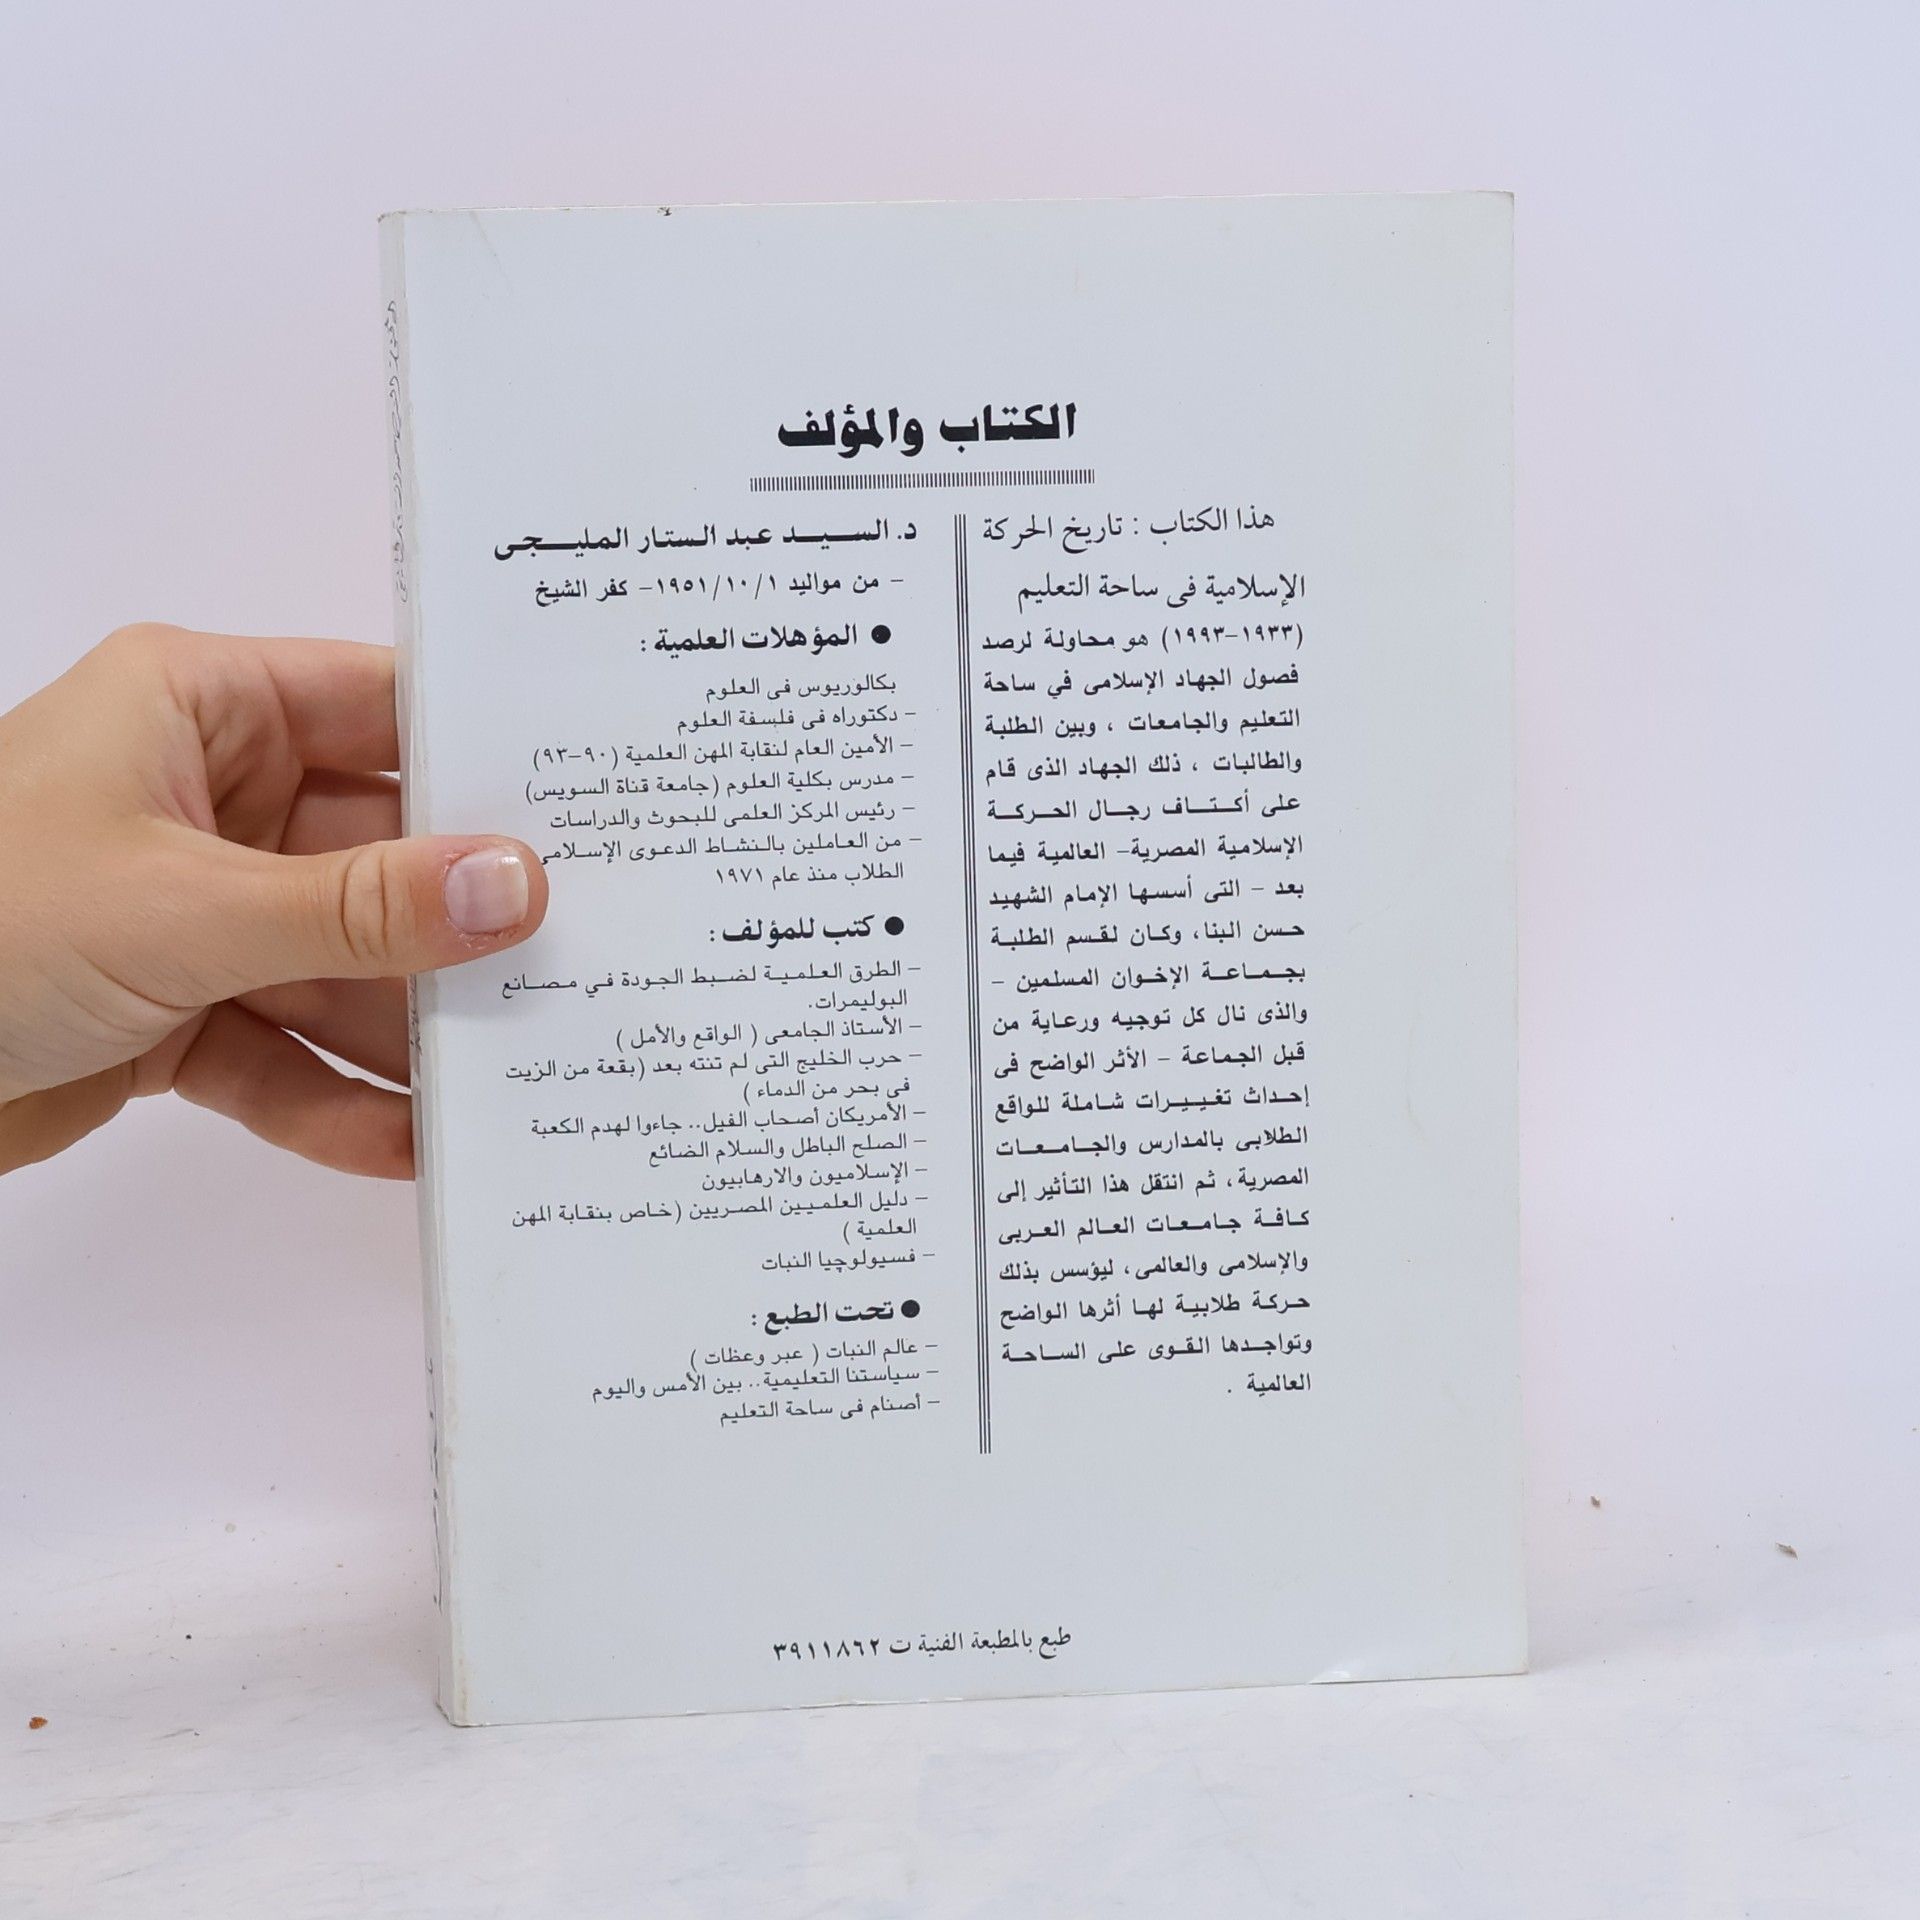 الكتاب والمؤلف
هذا الكتاب : تاريخ الحركة
الإسلامية فى ساحة التعليم
(١٩٣٣-١٩٩٣) هو محاولة لرصد
فصول الجهاد الإسلامى في ساحة
التعليم والجامعات ، وبين الطلبة
والطالبات ، ذلك الجهاد الذى قام
على أكتاف رجال الحركة
الإسلامية المصرية- العالمية فيما
بعد - التى أسسها الإمام الشهيد
حسن البنا، وكان لقسم الطلبة
بجماعة الإخوان المسلمين -
والذى نال كل توجيه ورعاية من
قبل الجماعة - الأثر الواضح فى
إحداث تغييرات شاملة للواقع
الطلابى بالمدارس والجامعات
المصرية، ثم انتقل هذا التأثير إلى
كافة جامعات العالم العربى
والإسلامى والعالمى، ليؤسس بذلك
حركة طلابية لها أثرها الواضح
وتواجدها القوى على الساحة
العالمية .
د. السيد عبد الستار المليجى
- من مواليد ١/ ١٠/ ١٩٥١- كفر الشيخ
● المؤهلات العلمية :
بكالوريوس فى العلوم
- دكتوراه فى فلسفة العلوم
- الأمين العام لنقابة المهن العلمية (٩٠-٩٣)
- مدرس بكلية العلوم (جامعة قناة السويس)
- رئيس المركز العلمى للبحوث والدراسات
- من العاملين بالنشاط الدعوى الإسلامى
الطلاب منذ عام ١٩٧١
● كتب للمؤلف :
- الطرق العلمية لضبط الجودة في مصانع
البوليمرات.
- الأستاذ الجامعى ( الواقع والأمل )
- حرب الخليج التى لم تنته بعد (بقعة من الزيت
فى بحر من الدماء )
- الأمريكان أصحاب الفيل.. جاءوا لهدم الكعبة
- الصلح الباطل والسلام الضائع
- الإسلاميون والارهابيون
- دليل العلميين المصريين (خاص بنقابة المهن
العلمية )
- فسيولوچيا النبات
● تحت الطبع :
- عالم النبات ( عبر وعظات )
- سياستنا التعليمية.. بين الأمس واليوم
- أصنام فى ساحة التعليم
طبع بالمطبعة الفنية ت ٣٩١١٨٦٢